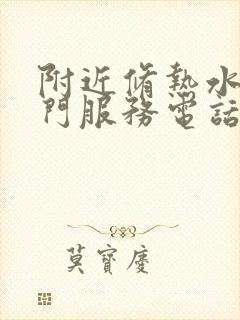 附近脩熱水
門服務電話
莫寶慶